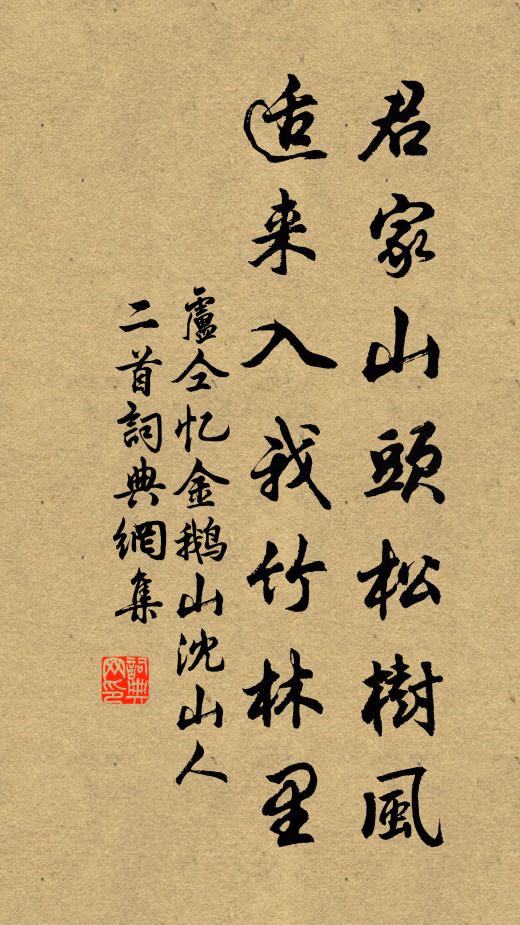 君家山頭松樹風
适来入我竹林里
盧仝忆金鹅山沈山人
二首詞典網集
詞典网印